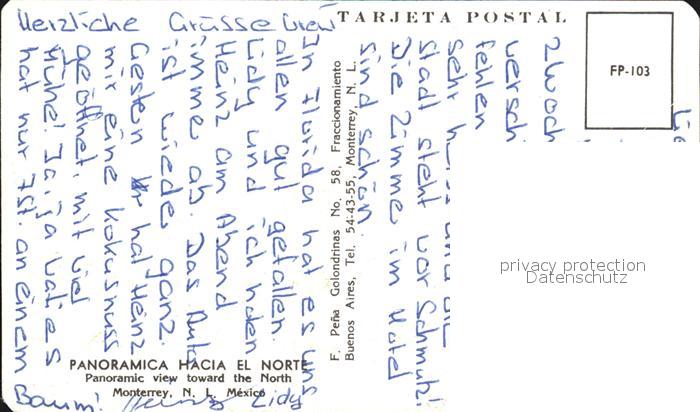 TARJETA POSTAL
FP-103
Herzliche Grüsse
2 Woch
versch
fehlen
sehr
Stadt steht vor Schmutz!
Die Zimmer im Hotel
sind schön.
In Florida hat es uns
allen gut gefallen.
Lidy und ich holen
Heinz am Abend
immer ab. Das Auto
ist wieder ganz.
Gestern hat Heinz
mir eine Kokosnuss
geöffnet, mit viel
Mühe! Ja, ja Vati es
hat nur 7 St. an einem
Baum! Heinz Lidy
F. Peña Golondrinas No. 58, Fraccionamiento
Buenos Aires, Tel. 54-43-55, Monterrey, N. L.
PANORAMICA HACIA EL NORTE
Panoramic view toward the North
Monterrey, N. L. México
privacy protection
Datenschutz